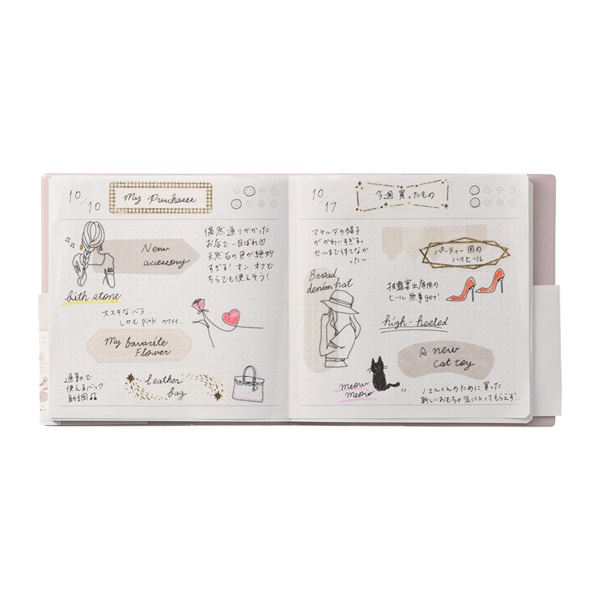 10
10
My Purchases
New
accessory
偶然通りかかった
お店で一目ぼれ
天然石の色が絶妙
すぎる！オン、オフど
ちらでも使えそう！
birth stone
大スキなバラ
しかも pink カワイイ…
My favorite
Flower
通勤で
使えるバッグ
新調♫
leather
bag
10
17
今週買ったもの
マチルダの帽子
がかわいすぎる。
セールまで待てなか
った…
パーティー用の
ハイヒール
Broad
denim hat
披露宴出席用の
ヒール無事get!
high-heeled
A new
Cat toy
meow
meow
ノエルくんのために買った
新しいおもちゃ気に入ってもらえず…